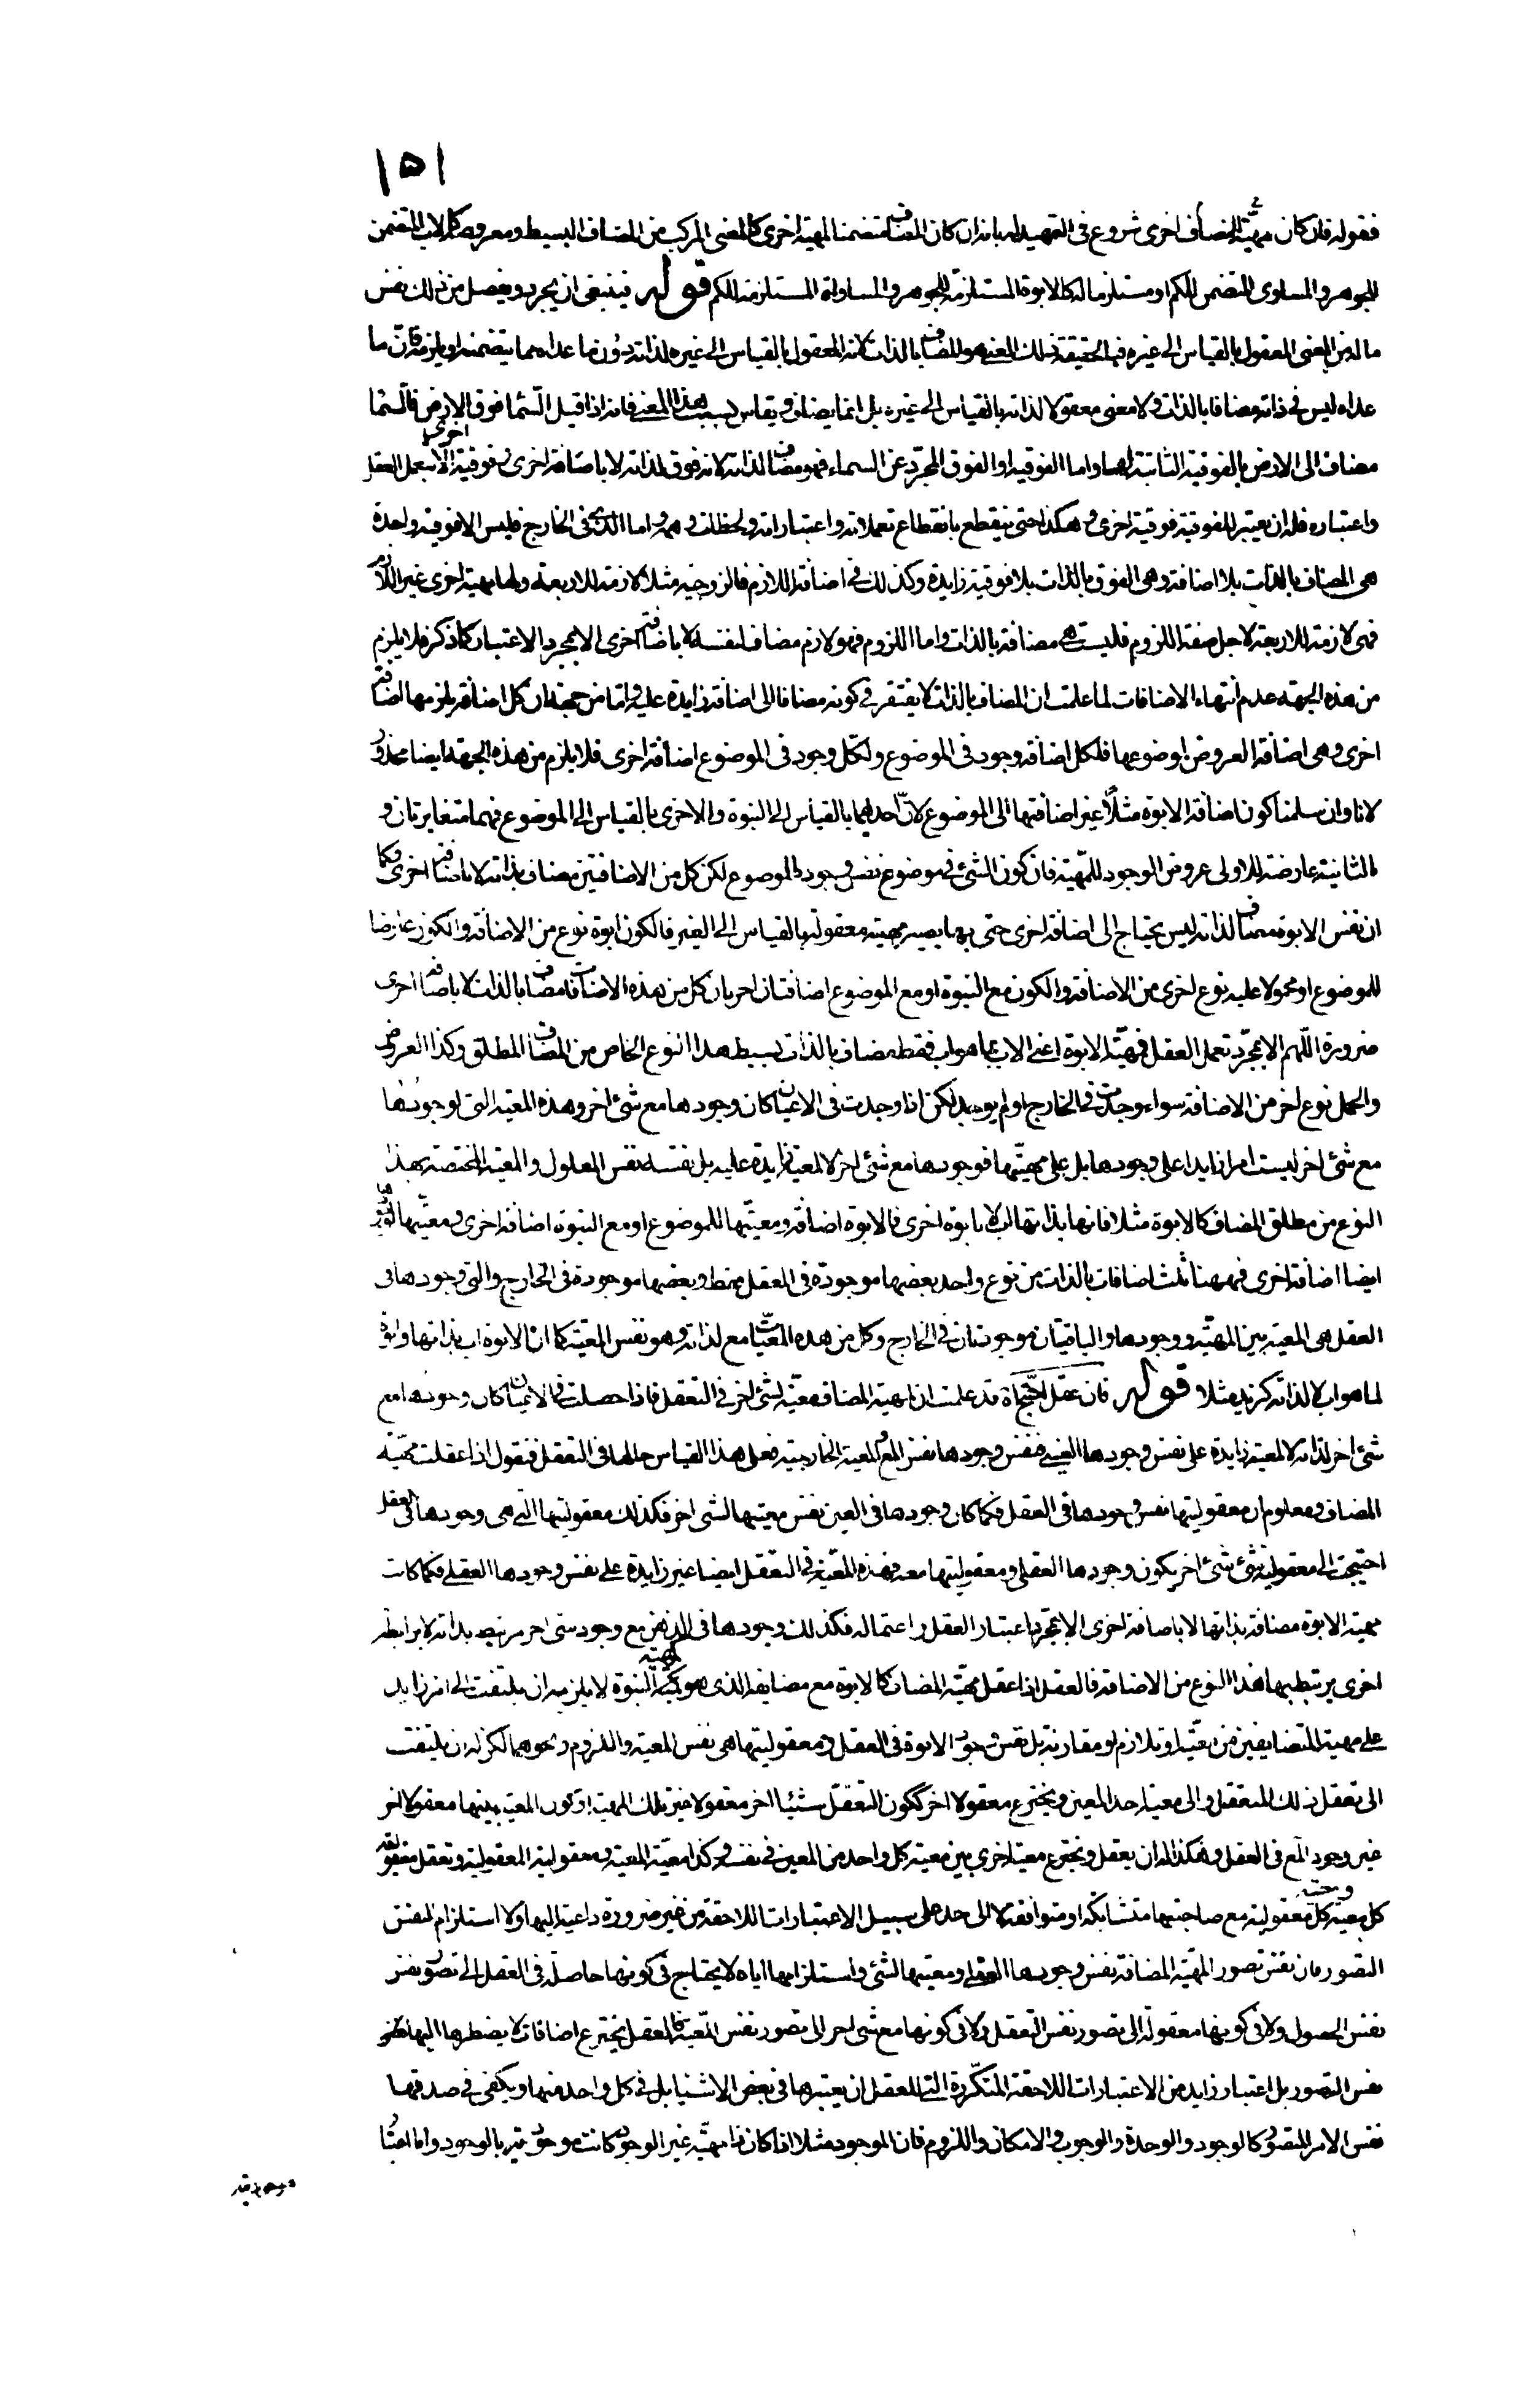 ١٥١
فقوله فان كان مهيّة المضاف اخرى شروع فى التمهيد له بانه ان كان المضاف متضمنا لمهية اخرى كالمعنى المركب من المضاف البسيط ومعروضه كالاب المتضمن
للجوهر والمساوى المتضمن للكم او مستلزما له كالابوة المستلزمة للجوهر والمساواة المستلزمة للكم قوله فينبغى ان يجرد ويفصل من ذلك نفس
ما له من المعنى المعقول بالقياس الى غيره فبالحقيقة ذلك المعنى هو المضاف بالذات لانه المعقول بالقياس الى غيره لذاته دون ما عداه مما يتضمنه او يلزمه فانّ ما
عداه ليس فى ذاته مضافا بالذات ولا معنى معقولا لذاته بالقياس الى غيره بل انما يضاف ويقاس بسبب هذا المعنى فانه اذا قيل السّماء فوق الارض فالسّماء
مضاف الى الارض بالفوقية الثابتة لها واما الفوقية او الفوق المجرّد عن السماء فهو مضاف لذاته لانه فوق لذاته لا باضافة اخرى وفوقية اخرى الا بتعمل العقل
واعتباره فله ان يعتبر للفوقية فوقية اخرى وهكذا حتى ينقطع بانقطاع تعملاته واعتباراته ولحظات وهمه واما الذى فى الخارج فليس الا فوقية واحدة
هى المضاف بالذات بلا اضافة وهى الفوق بالذات بلا فوقية زايدة وكذلك فى اضافة اللازم فالزوجية مثلا لازمة للاربعة ولها مهية اخرى غير اللازم
فهى لازمة للاربعة لاجل صفة اللزوم فليست هى مضافة بالذات واما اللزوم فهو لازم مضاف لنفسه لا باضافة اخرى الا بمجرد الاعتبار كما ذكر فلا يلزم
من هذه الجهة عدم انتهاء الاضافات لما علمت ان المضاف بالذات لا يفتقر فى كونه مضافا الى اضافة زايدة عليه واما من جهة ان كل اضافة يلزمها اضافة
اخرى وهى اضافة العروض لموضوعها فلكل اضافة وجود فى الموضوع ولكل وجود فى الموضوع اضافة اخرى فلا يلزم من هذه الجهة ايضا محذور
لانا وان سلمنا كون اضافة الابوة مثلا غير اضافتها الى الموضوع لانّ احديهما بالقياس الى البنوة والاخرى بالقياس الى الموضوع فهما متغايرتان و
الثانية عارضة للاولى عروض الوجود للمهيّة فان كون الشئ فى موضوع نفس وجوده للموضوع لكن كل من الاضافتين مضاف بذاته لا باضافة اخرى وكما
ان نفس الابوة مضاف لذاته ليس يحتاج الى اضافة اخرى حتى بها يصير مهيته معقولة بالقياس الى الغير فالكون ابوة نوع من الاضافة والكون عارضا
للموضوع او محمولا عليه نوع اخرى من الاضافة والكون مع البنوة او مع الموضوع اضافتان اخريان كل من هذه الاضافات مضاف بالذات لا باضافة اخرى
ضرورة اللّهم الا بمجرّد تعمل العقل فمهيّة الابوة اعنى الاب بما هو اب فقط مضاف بالذات بسيط هذا النوع الخاص من المضاف المطلق وكذا العروض
والحمل نوع اخر من الاضافة سواء وجدت فى الخارج او لم يوجد لكن اذا وجدت فى الاعيان كان وجودها مع شئ اخر وهذه المعية التى لوجودها
مع شئ اخر ليست امرا زايدا على وجودها بل على مهيّتها فوجودها مع شئ اخر لا لمعية زايدة عليه بل بنفسه نفس المعلول والمعية المختصة بهذا
النوع من مطلق المضاف كالابوة مثلا فانها بذاتها اب لا بابوة اخرى فالابوة اضافة ومعيّتها للموضوع او مع البنوة اضافة اخرى ومعيّتها لوجودها
ايضا اضافة اخرى فههنا ثلث اضافات بالذات من نوع واحد بعضها موجودة فى العقل فقط وبعضها موجودة فى الخارج والتى وجودها فى
العقل هى المعية بين المهيّة ووجودها والباقيتان موجودتان فى الخارج وكل من هذه المعيّات مع لذاته وهو نفس المعيّة كما ان الابوة اب بذاتها وابوة
لما هو اب لا لذاته كزيد مثلا قوله فان عقل احتيج اه قد علمت ان مهية المضاف معيّة لشئ اخر فى التعقل فاذا حصلت فى الاعيان كان وجودها مع
شئ اخر لذاته لا لمعية زايدة على نفس وجودها العينى فنفس وجودها نفس المع والمعية الخارجية فعلى هذا القياس حالها فى التعقل فنقول اذا عقلت مهيّة
المضاف ومعلوم ان معقوليتها نفس وجودها فى العقل فكما كان وجودها فى العين نفس معيتها لشئ اخر فكذلك معقوليتها التى هى وجودها فى العقل
احتيجت الى معقولية شئ اخر يكون وجودها العقلى ومعقوليتها معه وهذه المعيّة فى التعقل ايضا غير زايدة على نفس وجودها العقلى فكما كانت
مهية الابوة مضافة بذاتها لا باضافة اخرى الا بمجرد اعتبار العقل واعتماله فكذلك وجودها فى الذهن مع وجود شئ اخر مرتبط بذاته لا برابطة
اخرى يرتبط بها هذا النوع من الاضافة فالعقل اذا عقل مهيّة المضاف كالابوة مع مضايفه الذى هو كمهيّة البنوة لا يلزمه ان يلتفت الى امر زايد
على مهية المتضايفين من معيّة او تلازم او مقارنة بل نفس وجود الابوة فى العقل ومعقوليتها هى نفس المعية واللزوم ونحوهما لكن له ان يلتفت
الى تعقل ذلك المتعقل والى معية احد المعين ويخترع معقولا اخر ككون التعقل شيئا اخر معقولا غير تلك المهية او كون المعية بينهما معقولا اخر
غير وجود المع فى العقل وهكذا له ان يعقل ويخترع معية اخرى بين معية كل واحد من المعين فى نفسه وكذا معية المعية ومعقولية المعقولية وتعقل معقولية
كل معية ومعية كل معقولية مع صاحبتها متشابكة او متوافقة لا الى حد على سبيل الاعتبارات اللاحقة من غير ضرورة داعية اليها ولا استلزام لنفس
التصور فان نفس تصور المهيّة المضافة نفس وجودها العقلى ومعيتها لشئ واستلزامها اياه لا يحتاج فى كونها حاصلة فى العقل الى تصور نفس
نفس الحصول ولا فى كونها معقولة الى تصور نفس التعقل ولا فى كونها مع شئ اخر الى تصور نفس المعيّة فالعقل يخترع اضافات لا يضطرها اليها نفس
نفس التصور بل اعتبار زايد من الاعتبارات اللاحقة المتكّررة التى للعقل ان يعتبرها فى بعض الاشيا بل فى كل واحد منها ويكفى فى صدقها
نفس الامر المتصور كالوجود والوحدة والوجوب والامكان واللزوم فان الموجود مثلا اذا كان ذا مهيّة غير الوجود كانت موجوديته بالوجود واما اعتبار